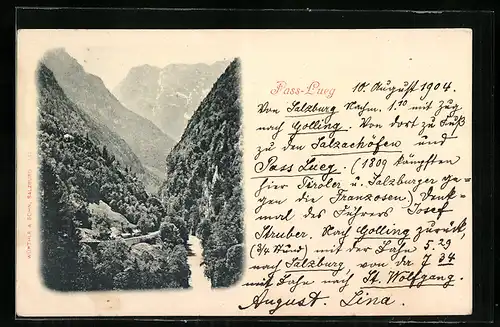 Pass-Lueg
10. August 1904.
Von Salzburg Nachm. 1.10 mit Zug
nach Golling. Von dort zu Fuß
zu den Salzachöfen und
Pass Lueg. (1809 kämpften
hier Tiroler u. Salzburger ge-
gen die Franzosen) Denk-
mal des Führers Josef
Struber. Nach Golling zurück,
(3/4 Stund) mit der Bahn 5.29
nach Salzburg, von da 7 34
mit Bahn nach St. Wolfgang.
August. Lina.
WÜRTHLE & SOHN, SALZBURG.